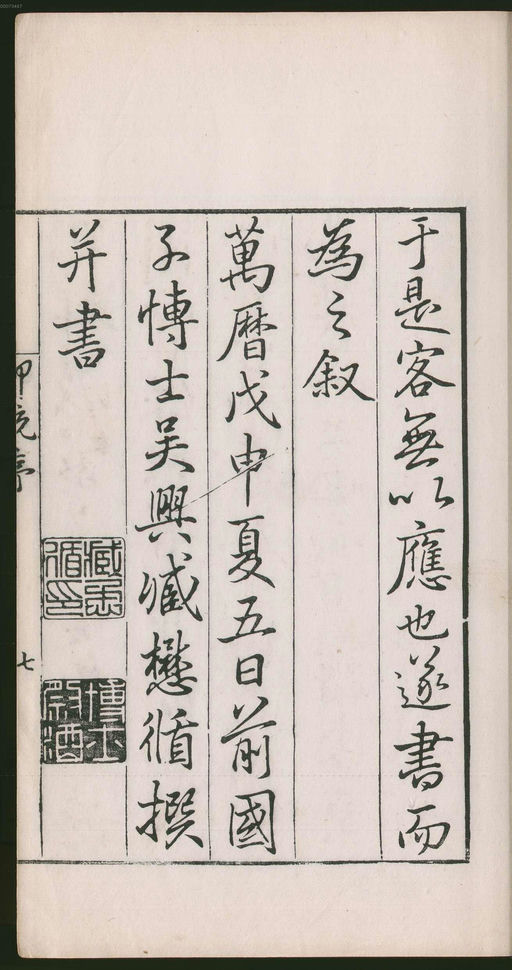 00073487
于是客無以應也遂書而
為之叙
萬曆戊申夏五日前國
子博士吳興臧懋循撰
并書
臧懋循印
博士祭酒
七